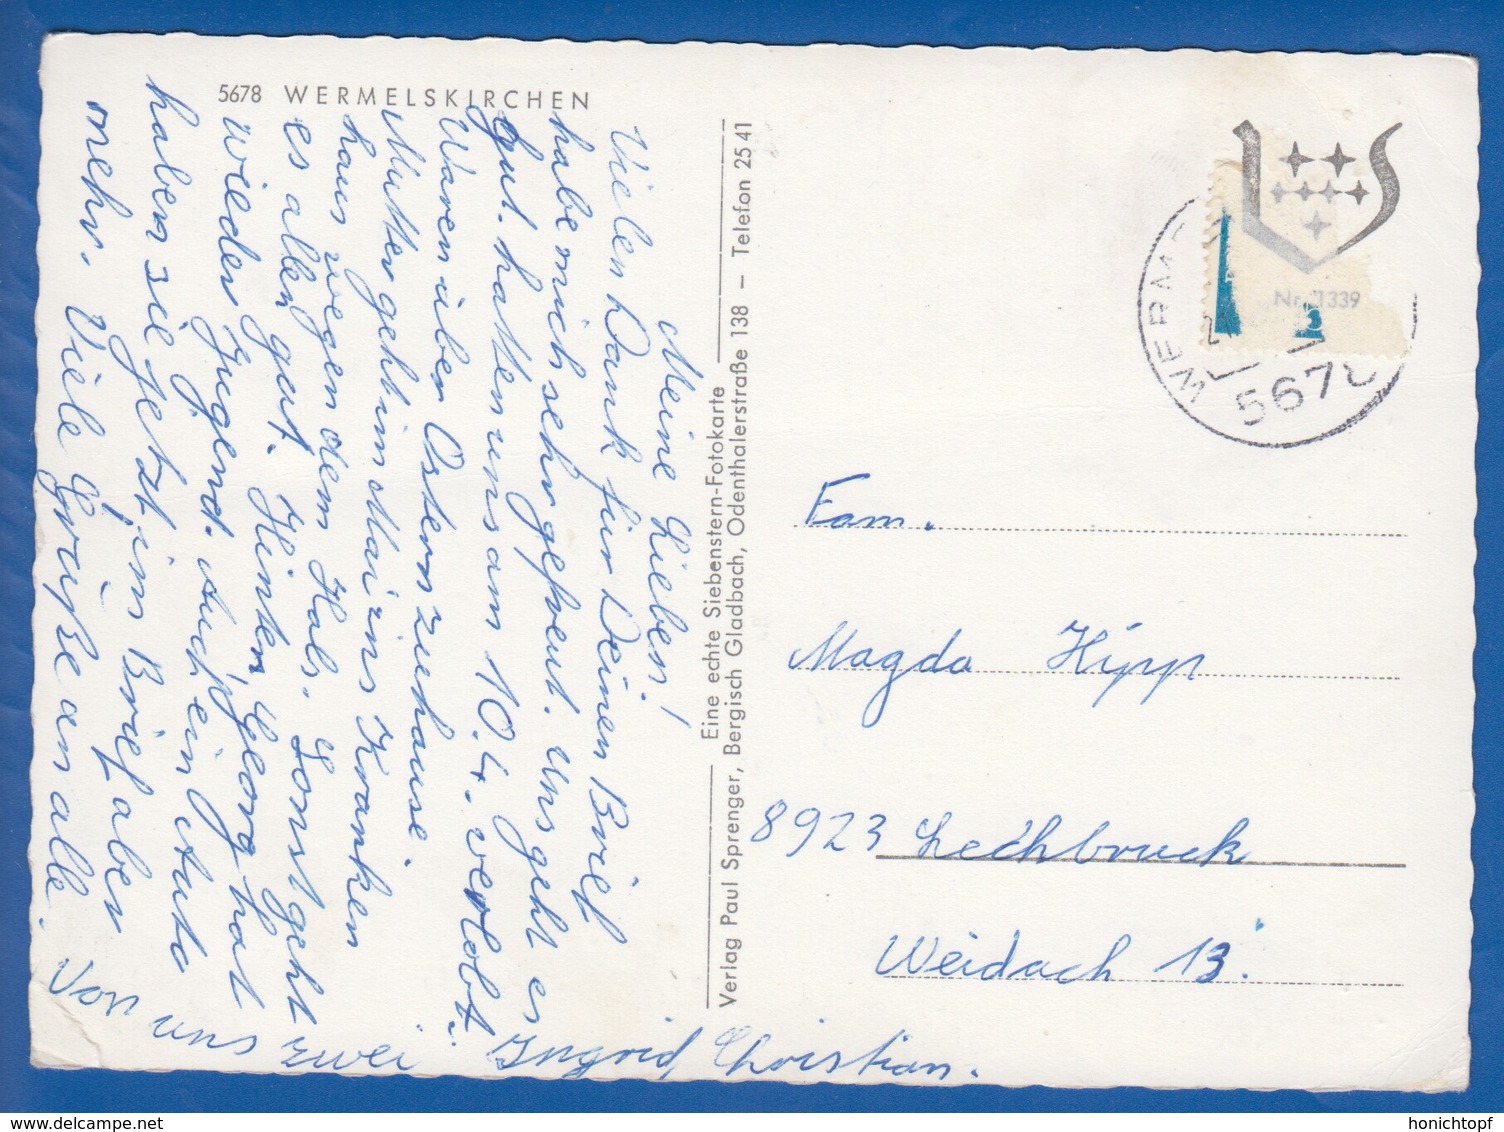 5678 WERMELSKIRCHEN
Meine Lieben!
Vielen Dank für Deinen Brief
habe mich sehr gefreut. Uns geht es
gut. hatten uns am 10.4. verlobt.
Waren über Ostern zuhause.
Mutter geht im Mai ins Kranken
haus wegen dem Hals. Sonst geht
es allen gut. Hinten Georg hat
wieder Jugend. Auch ein Auto
haben sie jetzt im Brief aber
mehr. Viele Grüße an alle.
Von uns zwei Ingrid Christian.
Eine echte Siebenstern-Fotokarte
Verlag Paul Sprenger, Bergisch Gladbach, Odenthalerstraße 138 – Telefon 25 41
Nr. 1339
WERM
5678
Fam.
Magda Hipp
8923 Lechbruck
Weidach 13.
honichtopf
delcampe.net